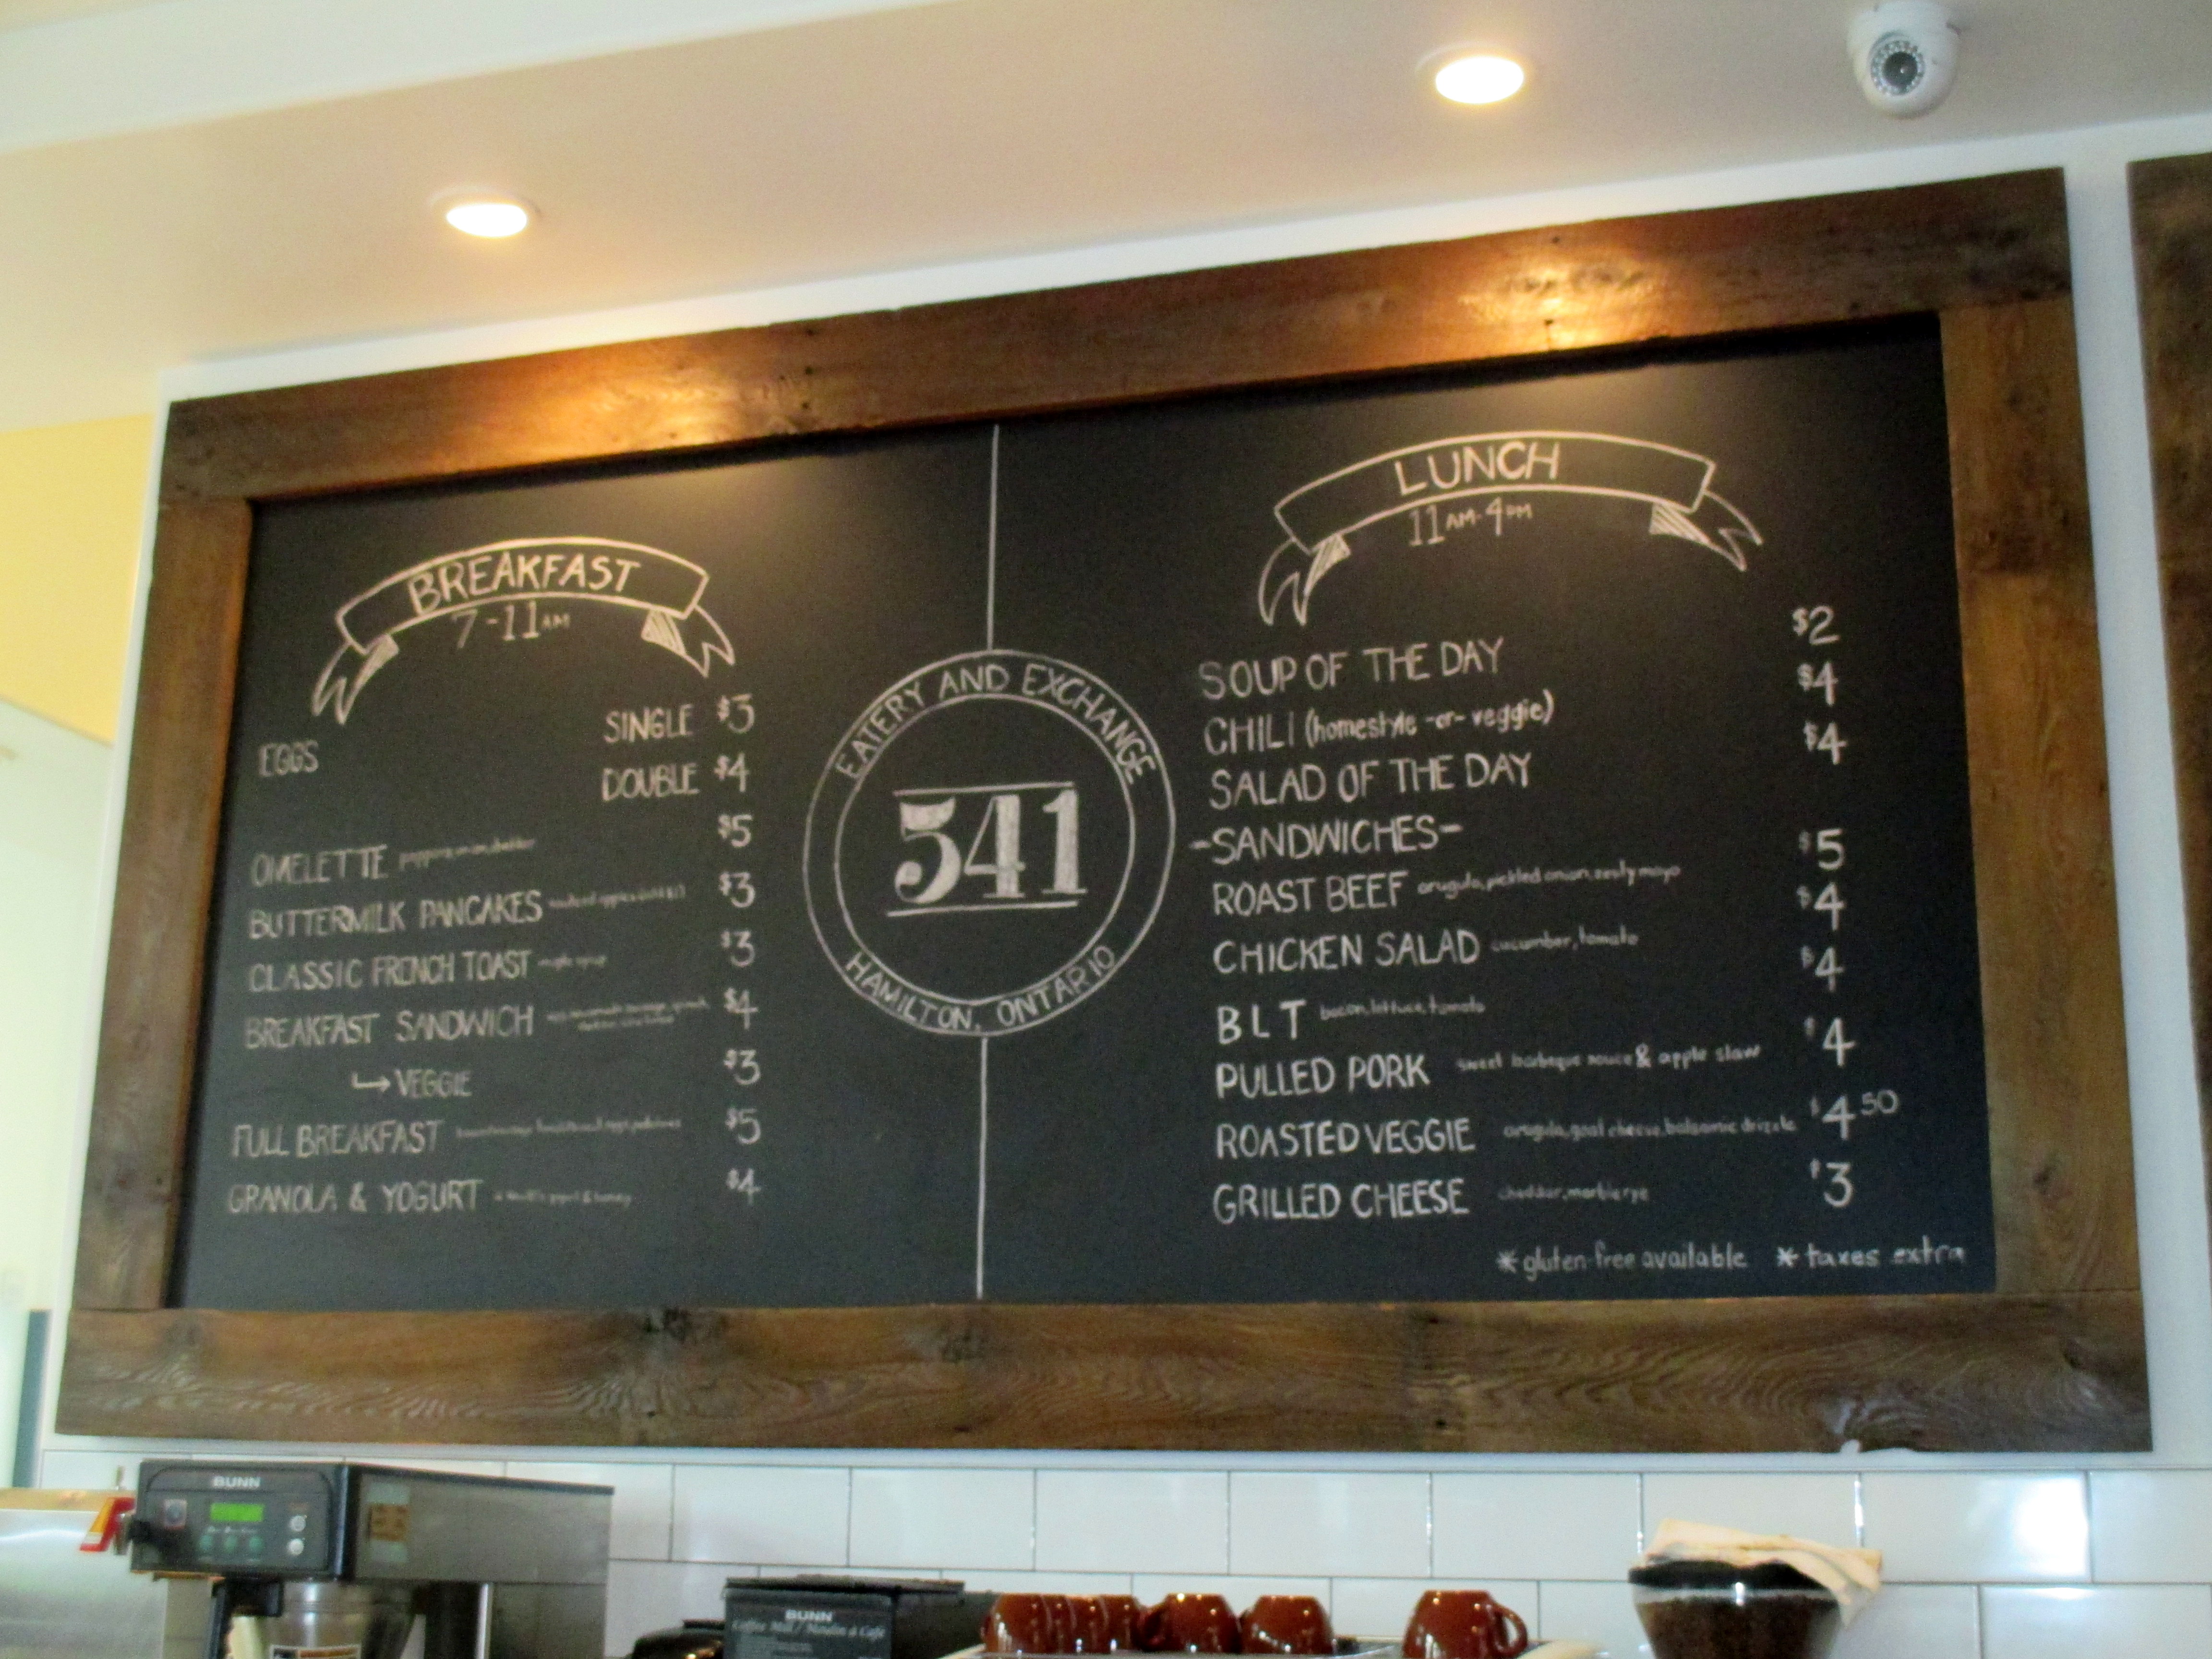 BREAKFAST
7-11AM
EGGS
SINGLE $3
DOUBLE $4
OMELETTE $5
BUTTERMILK PANCAKES $3
CLASSIC FRENCH TOAST maple syrup $3
BREAKFAST SANDWICH $4
VEGGIE $3
FULL BREAKFAST $5
GRANOLA & YOGURT yogurt & honey $4
EATERY AND EXCHANGE
541
HAMILTON, ONTARIO
LUNCH
11AM-4PM
SOUP OF THE DAY $2
CHILI (homestyle -or- veggie) $4
SALAD OF THE DAY $4
-SANDWICHES-
ROAST BEEF arugula, pickled onion, zesty mayo $5
CHICKEN SALAD cucumber, tomato $4
BLT bacon, lettuce, tomato $4
PULLED PORK sweet barbeque sauce & apple slaw $4
ROASTED VEGGIE arugula, goat cheese, balsamic drizzle $4 50
GRILLED CHEESE cheddar, marble rye $3
* gluten-free available * taxes extra
BUNN
BUNN
Coffee Mill / Moulin à Café